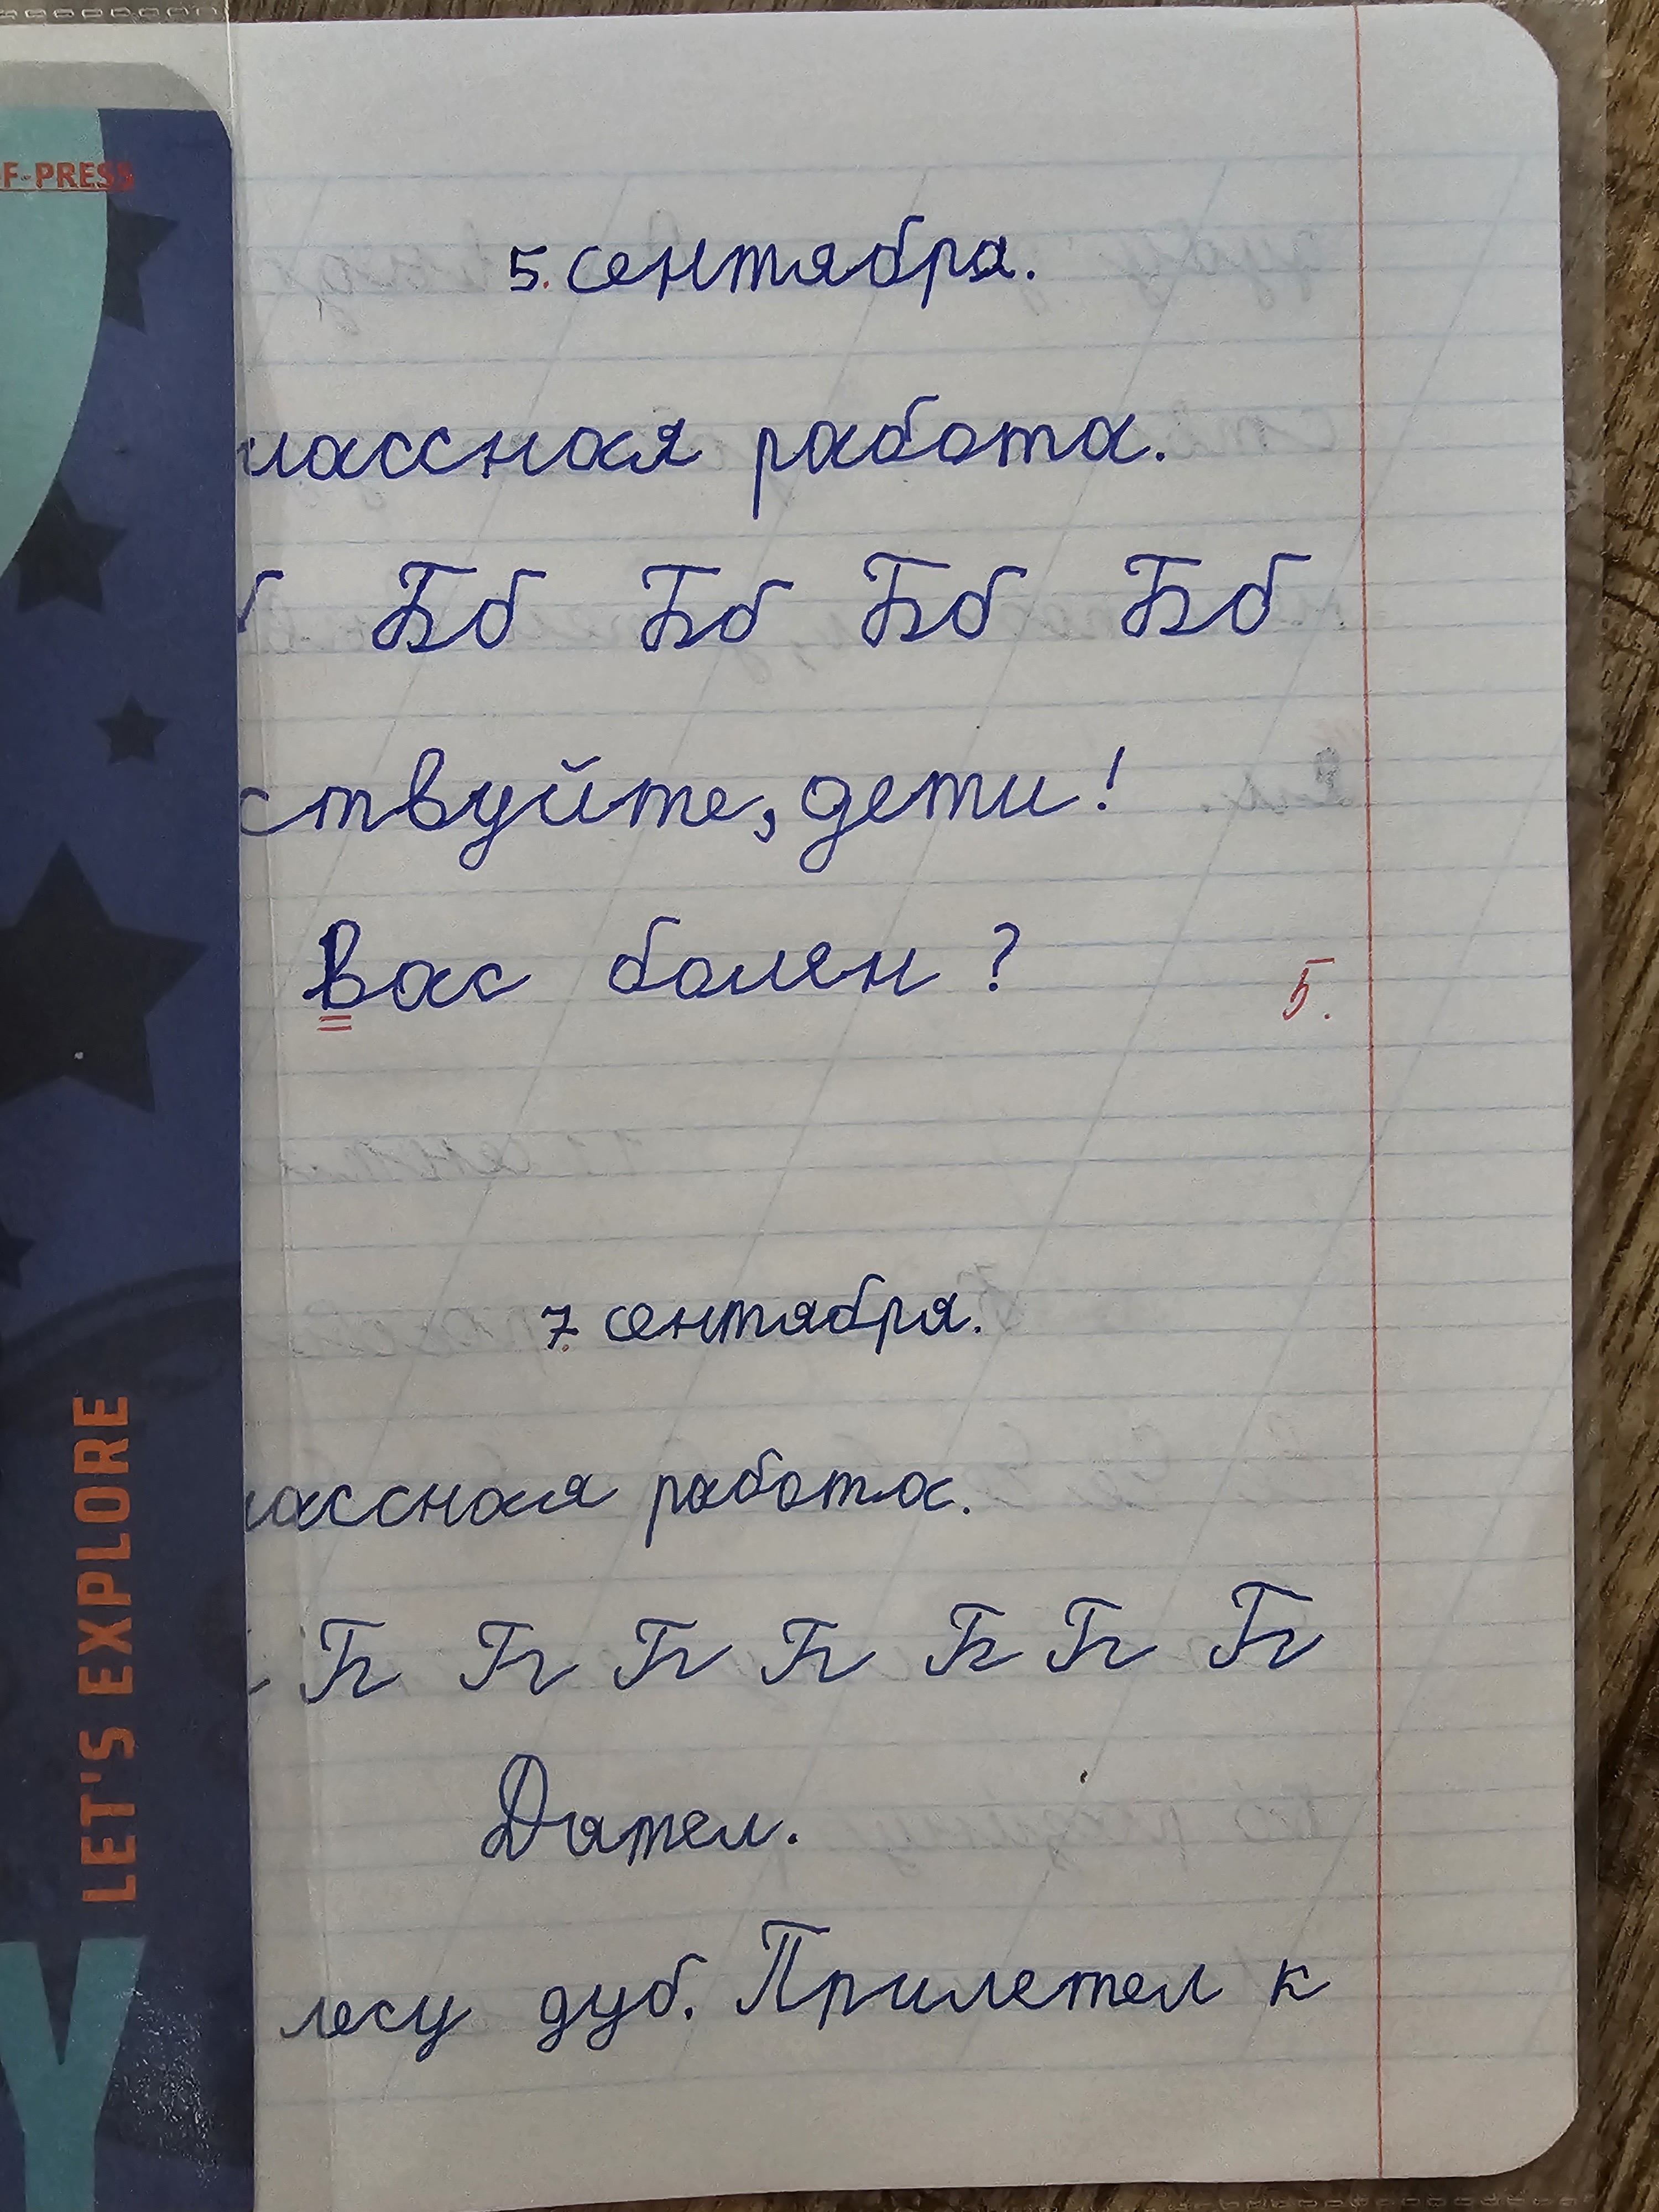 F-PRESS
5. сентября.
лассная работа.
б Бб Бб Бб Бб
ствуйте, дети!
Вас болен?
5.
7. сентября.
лассная работа.
Дятел.
лесу дуб. Прилетел к
LET'S EXPLORE